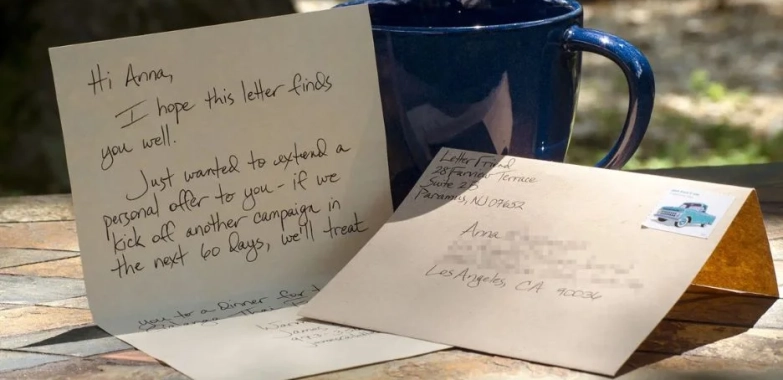 Hi Anna,
I hope this letter finds
you well.
Just wanted to extend a
personal offer to you - if we
kick off another campaign in
the next 60 days, we'll treat
you to a Dinner for
Letter Friend
28 Farview Terrace
Suite 2B
Paramus, NJ 07652
Anna
Los Angeles, CA 90036